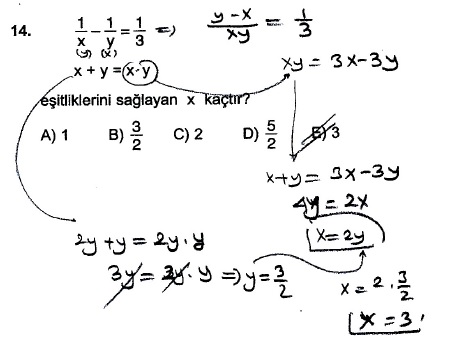 14. 1/x - 1/y = 1/3 => y-x/xy = 1/3
(y) (x)
x + y = x·y
xy = 3x-3y
eşitliklerini sağlayan x kaçtır?
A) 1 B) 3/2 C) 2 D) 5/2 E) 3
x+y = 3x-3y
4y = 2x
x=2y
2y+y = 2y·y
3y = 2y·y => y = 3/2
x = 2·3/2
x = 3